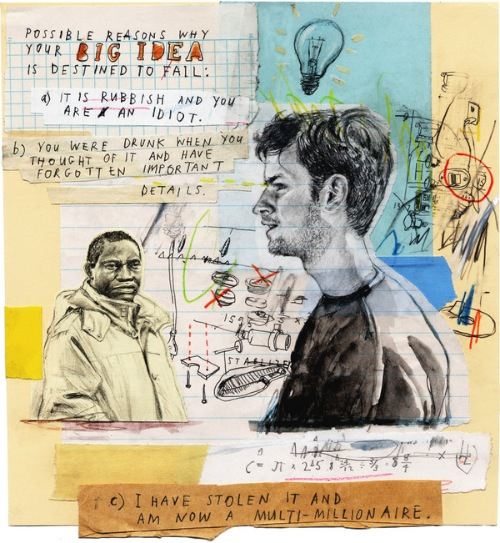 POSSIBLE REASONS WHY
YOUR BIG IDEA
IS DESTINED TO FAIL:
a) IT IS RUBBISH AND YOU
ARE AN IDIOT.
b) YOU WERE DRUNK WHEN YOU
THOUGHT OF IT AND HAVE
FORGOTTEN IMPORTANT
DETAILS.
c) I HAVE STOLEN IT AND
AM NOW A MULTI-MILLIONAIRE.